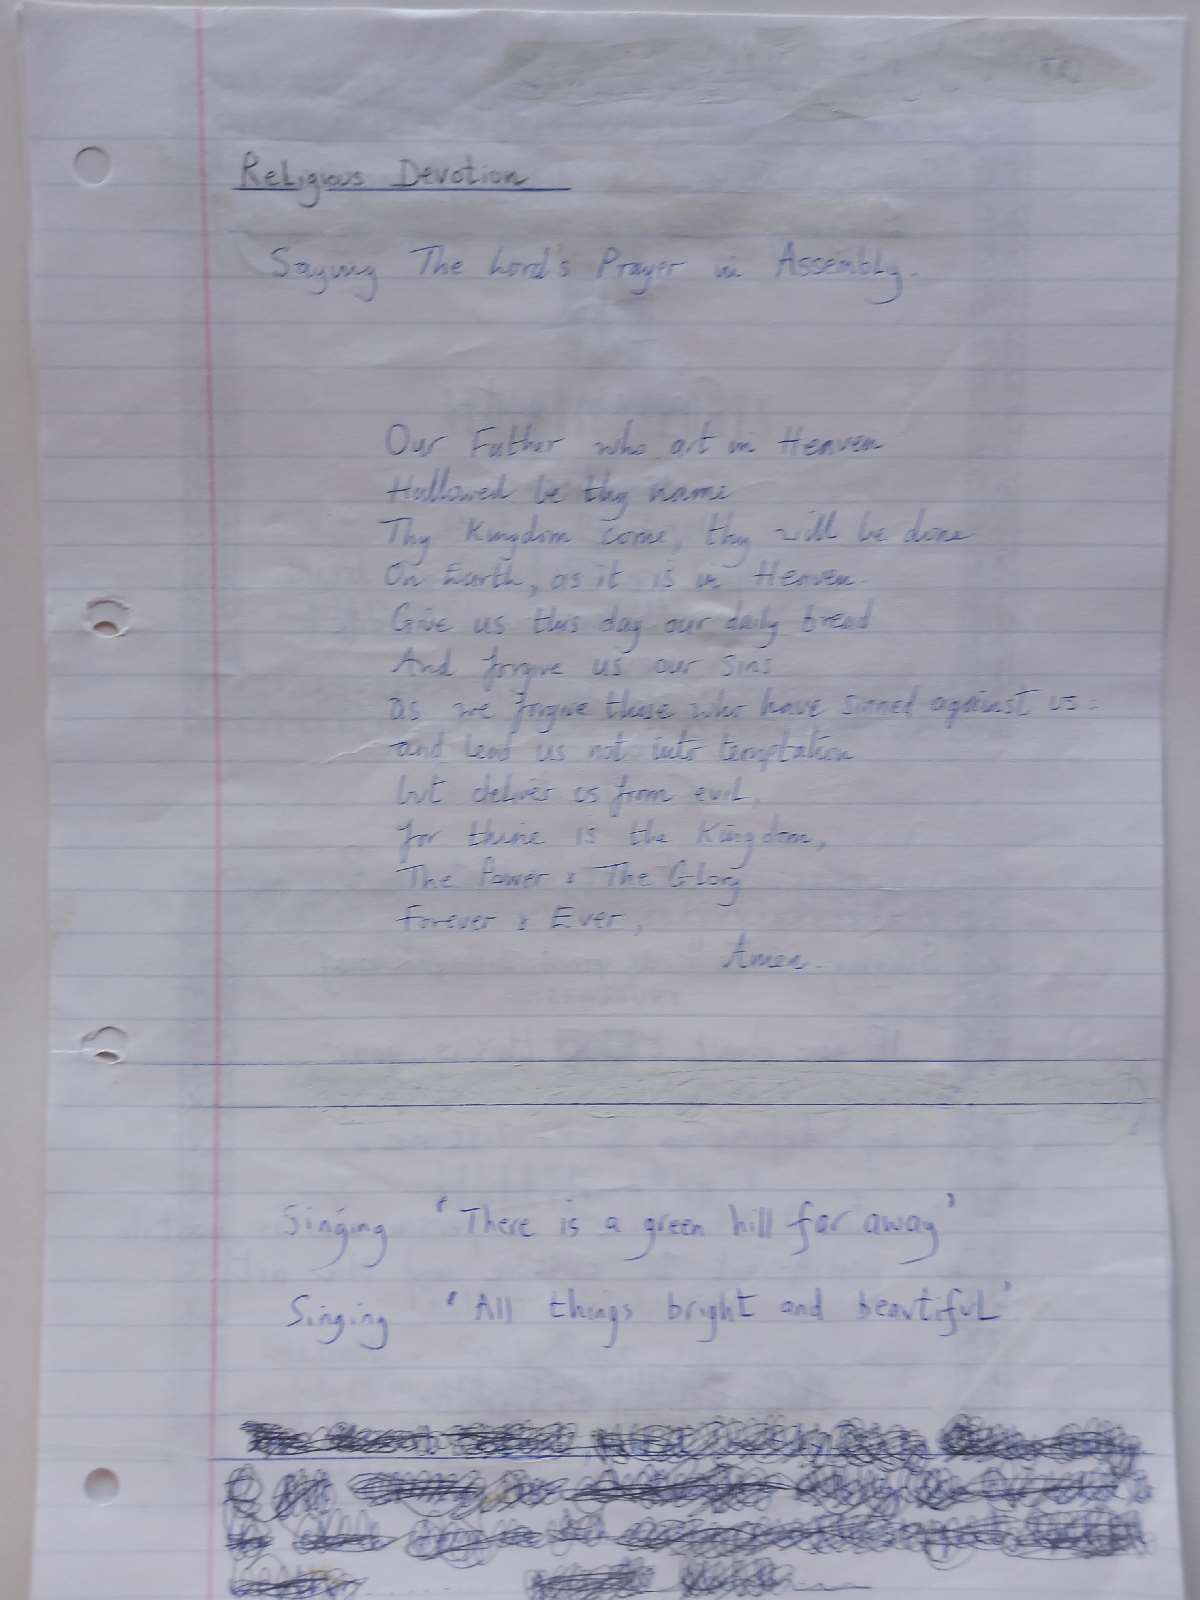 Religious Devotion
Saying The Lord's Prayer in Assembly.
Our Father who art in Heaven
Hallowed be thy name
Thy Kingdom come, thy will be done
On Earth, as it is in Heaven.
Give us this day our daily bread
And forgive us our sins
as we forgive those who have sinned against us:
and lead us not into temptation
but deliver us from evil,
for thine is the Kingdom,
The Power & The Glory
Forever & Ever,
Amen.
Singing 'There is a green hill far away'
Singing 'All things bright and beautiful'